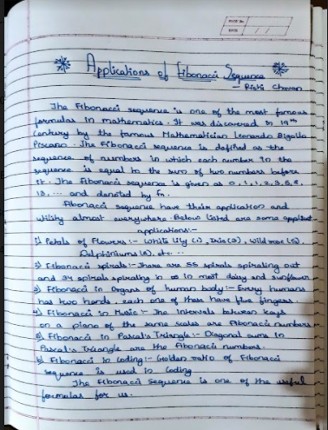 Applications of Fibonacci Sequence
The Fibonacci sequence is one of the most famous
formulas in mathematics. It was discovered in 19th
Century by the famous Mathematician Leonardo
. The Fibonacci sequence is defined as the
sequence of numbers in which each number in the
sequence is equal to the sum of two numbers before
it. The Fibonacci sequence is given as 0, 1, 1, 2, 3, 5, 8,
13, ... and denoted by Fn.
Fibonacci sequence have their application and
utility almost everywhere. Below listed are some
applications:-
1) Petals of Flowers:- White Lily (1), (3), Wild rose (5),
Delphiniums (8), etc...
2) Fibonacci spirals:- There are 55 spirals spiraling out
and 34 spirals spiraling in in most daisy and sunflower
3) Fibonacci in Organs of human body:- Every humans
has two hands, each one of these have five fingers.
4) Fibonacci in Music:- The intervals between keys
on a piano of the same scales are Fibonacci numbers
5) Fibonacci in Pascal's Triangle:- Diagonal sums in
Pascal's Triangle are the Fibonacci numbers.
6) Fibonacci in Coding:- Golden ratio of Fibonacci
sequence is used in Coding.
The Fibonacci Sequence is one of the useful
formulas for us.